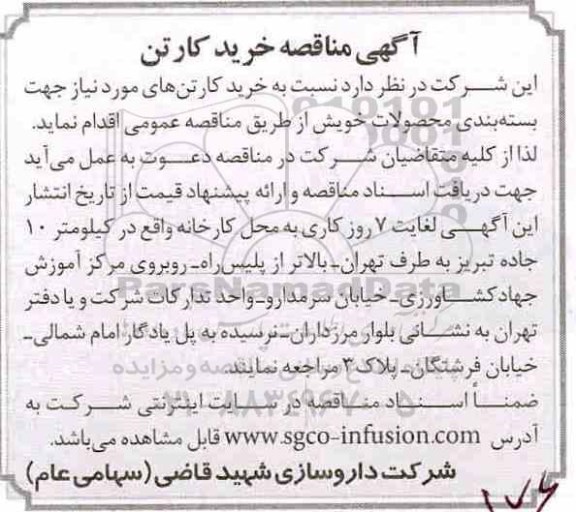 آگهی مناقصه خرید کارتن
این شرکت در نظر دارد نسبت به خرید کارتن‌های مورد نیاز جهت
بسته‌بندی محصولات خویش از طریق مناقصه عمومی اقدام نماید.
لذا از کلیه متقاضیان شرکت در مناقصه دعوت به عمل می‌آید
جهت دریافت اسناد مناقصه و ارائه پیشنهاد قیمت از تاریخ انتشار
این آگهی لغایت ۷ روز کاری به محل کارخانه واقع در کیلومتر ۱۰
جاده تبریز به طرف تهران-بالاتر از پلیس‌راه-روبروی مرکز آموزش
جهاد کشاورزی-خیابان سرمدارو-واحد تدارکات شرکت و یا دفتر
تهران به نشانی بلوار مرزداران-نرسیده به پل یادگار امام شمالی-
خیابان فرشتگان-پلاک ۳ مراجعه نمایند.
ضمناً اسناد مناقصه در سایت اینترنتی شرکت به
آدرس www.sgco-infusion.com قابل مشاهده می‌باشد.
شرکت داروسازی شهید قاضی (سهامی عام)
۱۷۶
ParsNamadData